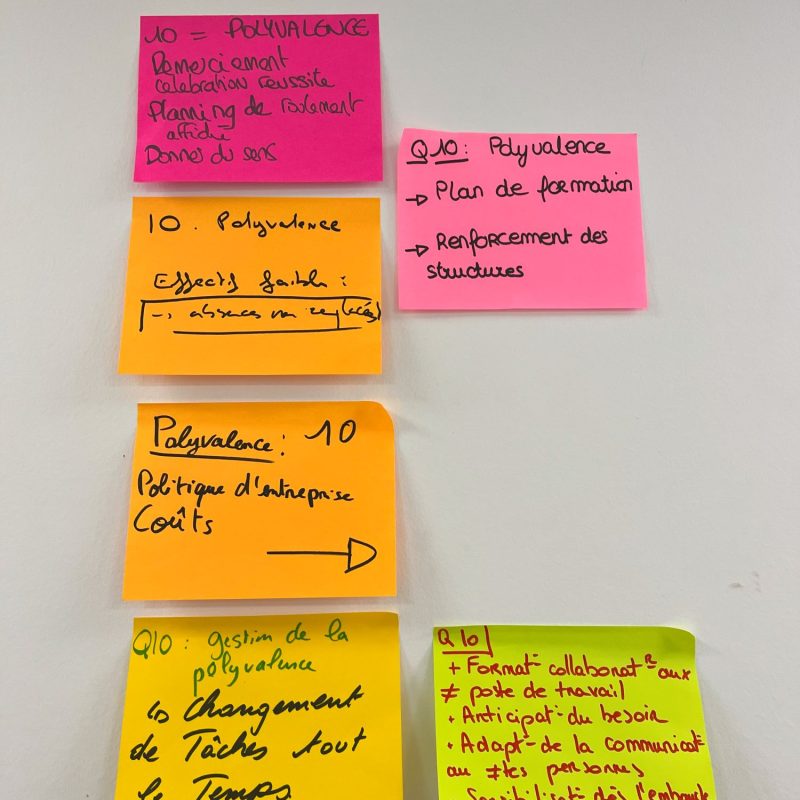 10 = POLYVALENCE
Remerciement
celebration reussite
Planning de roulement
affiché
Donner du sens
Q10: Polyvalence
→ Plan de formation
→ Renforcement des
structures
10. Polyvalence
Effectif faible :
→ absences non
Polyvalence : 10
Politique d'entreprise
Coûts
Q10 : gestion de la
polyvalence
↳ changement
de Tâches tout
le Temps
Q10
+ Format° collaborat^R aux
≠ poste de travail
+ Anticipat° du besoin
+ Adapt° de la communicat°
au ≠tes personnes
+ Sensibilisat° dès l'embauche